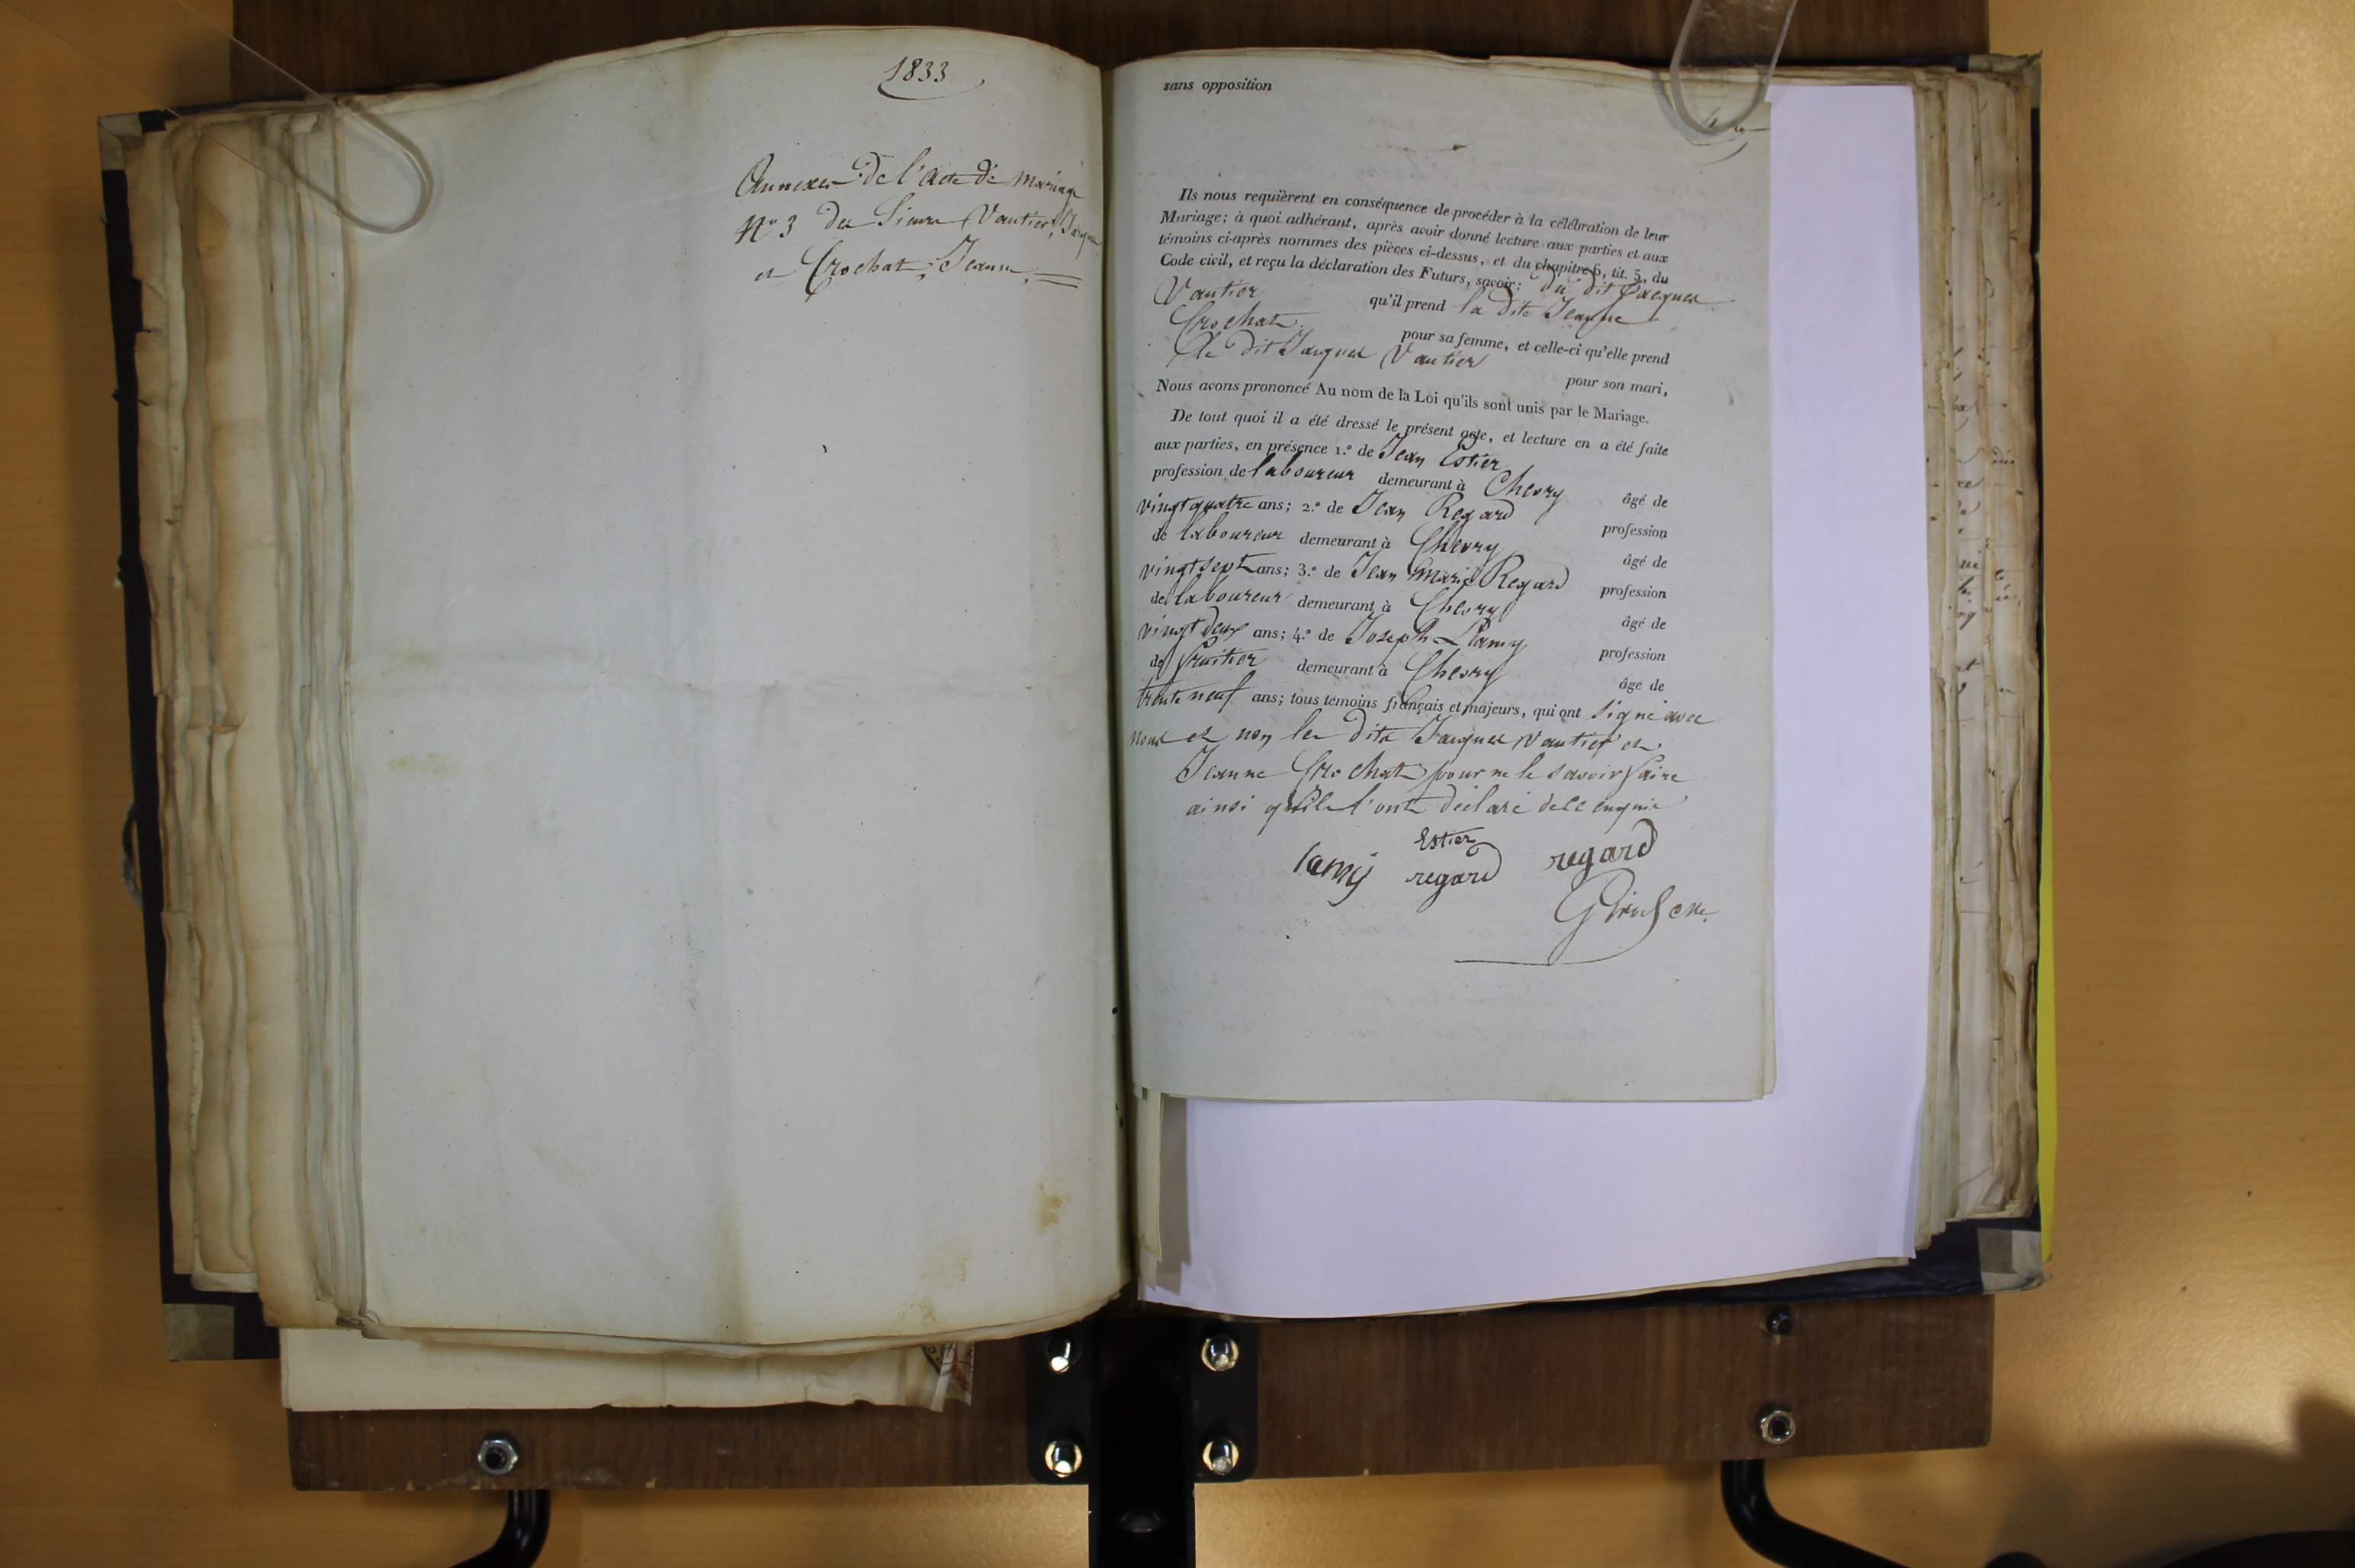 1833
Annexes de l'Acte de Mariage
N° 3 du Sieur Vautier, Jacques
et Crochat, Jeanne
sans opposition
Ils nous requièrent en conséquence de procéder à la célébration de leur
Mariage; à quoi adhérant, après avoir donné lecture aux parties et aux
témoins ci-après nommés des pièces ci-dessus, et du chapitre 6, tit. 5, du
Code civil, et reçu la déclaration des Futurs, savoir: du dit Jacques
Vautier qu'il prend la dite Jeanne
Crochat pour sa femme, et celle-ci qu'elle prend
le dit Jacques Vautier pour son mari,
Nous avons prononcé Au nom de la Loi qu'ils sont unis par le Mariage.
De tout quoi il a été dressé le présent acte, et lecture en a été faite
aux parties, en présence 1.° de Jean Estier
profession de laboureur demeurant à Chevry âgé de
vingt quatre ans; 2.° de Jean Regard profession
de laboureur demeurant à Chevry âgé de
vingt sept ans; 3.° de Jean Marie Regard profession
de laboureur demeurant à Chevry âgé de
vingt deux ans; 4.° de Joseph Lamy profession
de fruitier demeurant à Chevry âgé de
trente neuf ans; tous témoins français et majeurs, qui ont signé avec
nous et non les dits Jacques Vautier et
Jeanne Crochat pour ne le savoir faire
ainsi qu'ils l'ont déclaré de ce enquis
Estier
lamy regard regard